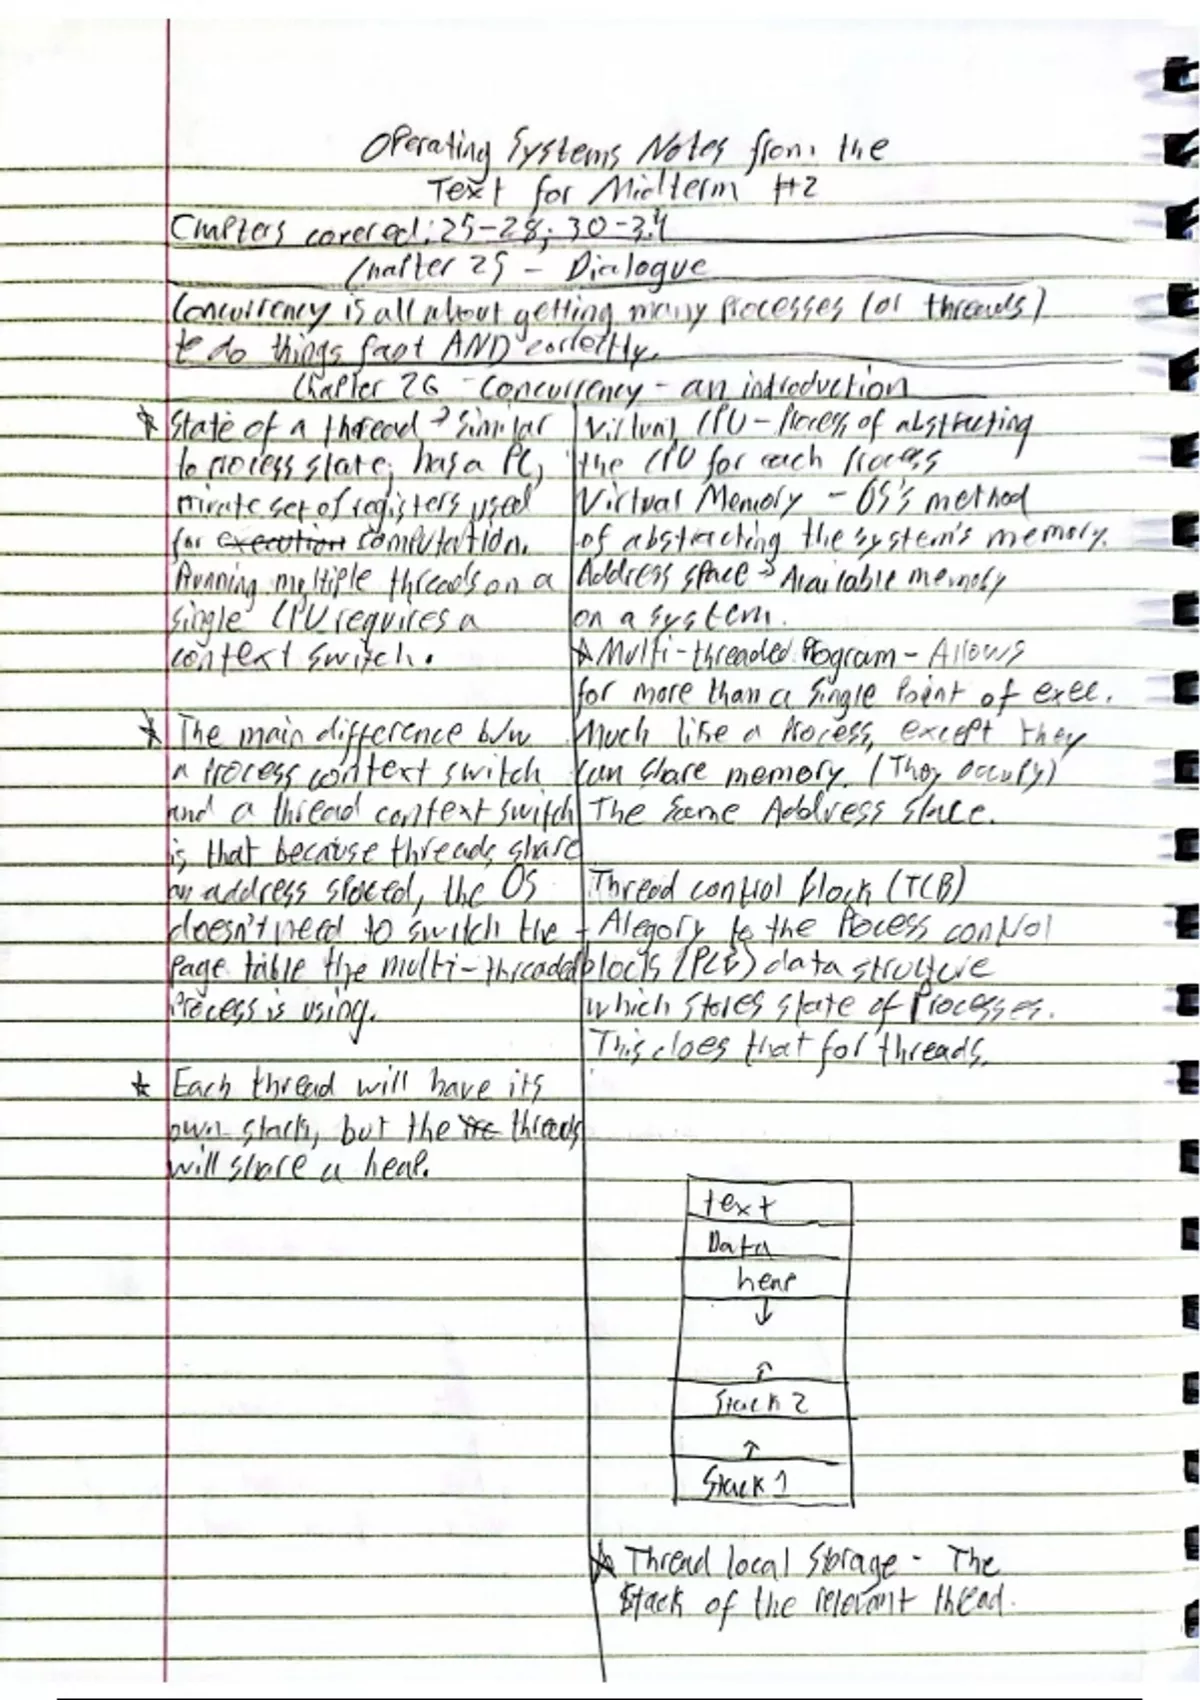 Operating Systems Notes from the
Text for Midterm #2
Chapters covered: 25-28; 30-34
Chapter 25 - Dialogue
Concurrency is all about getting many processes (or threads)
to do things fast AND correctly.
Chapter 26 - Concurrency - an introduction
* State of a thread → similar
to process state; has a PC,
private set of registers used
for execution computation.
Running multiple threads on a
single CPU requires a
context switch.
* The main difference b/w
a process context switch
and a thread context switch
is that because threads share
an address spaced, the OS
doesn't need to switch the
page table the multi-threaded
process is using.
* Each thread will have its
own stack, but the the threads
will share a heap.
Virtual CPU - Process of abstracting
the CPU for each process
Virtual Memory - OS's method
of abstracting the system's memory.
Address space → Available memory
on a system.
* Multi-threaded Program - Allows
for more than a single point of exec.
Much like a process, except they
can share memory. (They occupy)
The same Address space.
Thread control block (TCB)
- Alegory to the Process control
block (PCB) data structure
which stores state of processes.
This does that for threads.
text
Data
heap
↓
↑
Stack 2
↑
Stack 1
* Thread local storage - The
stack of the relevant thread.